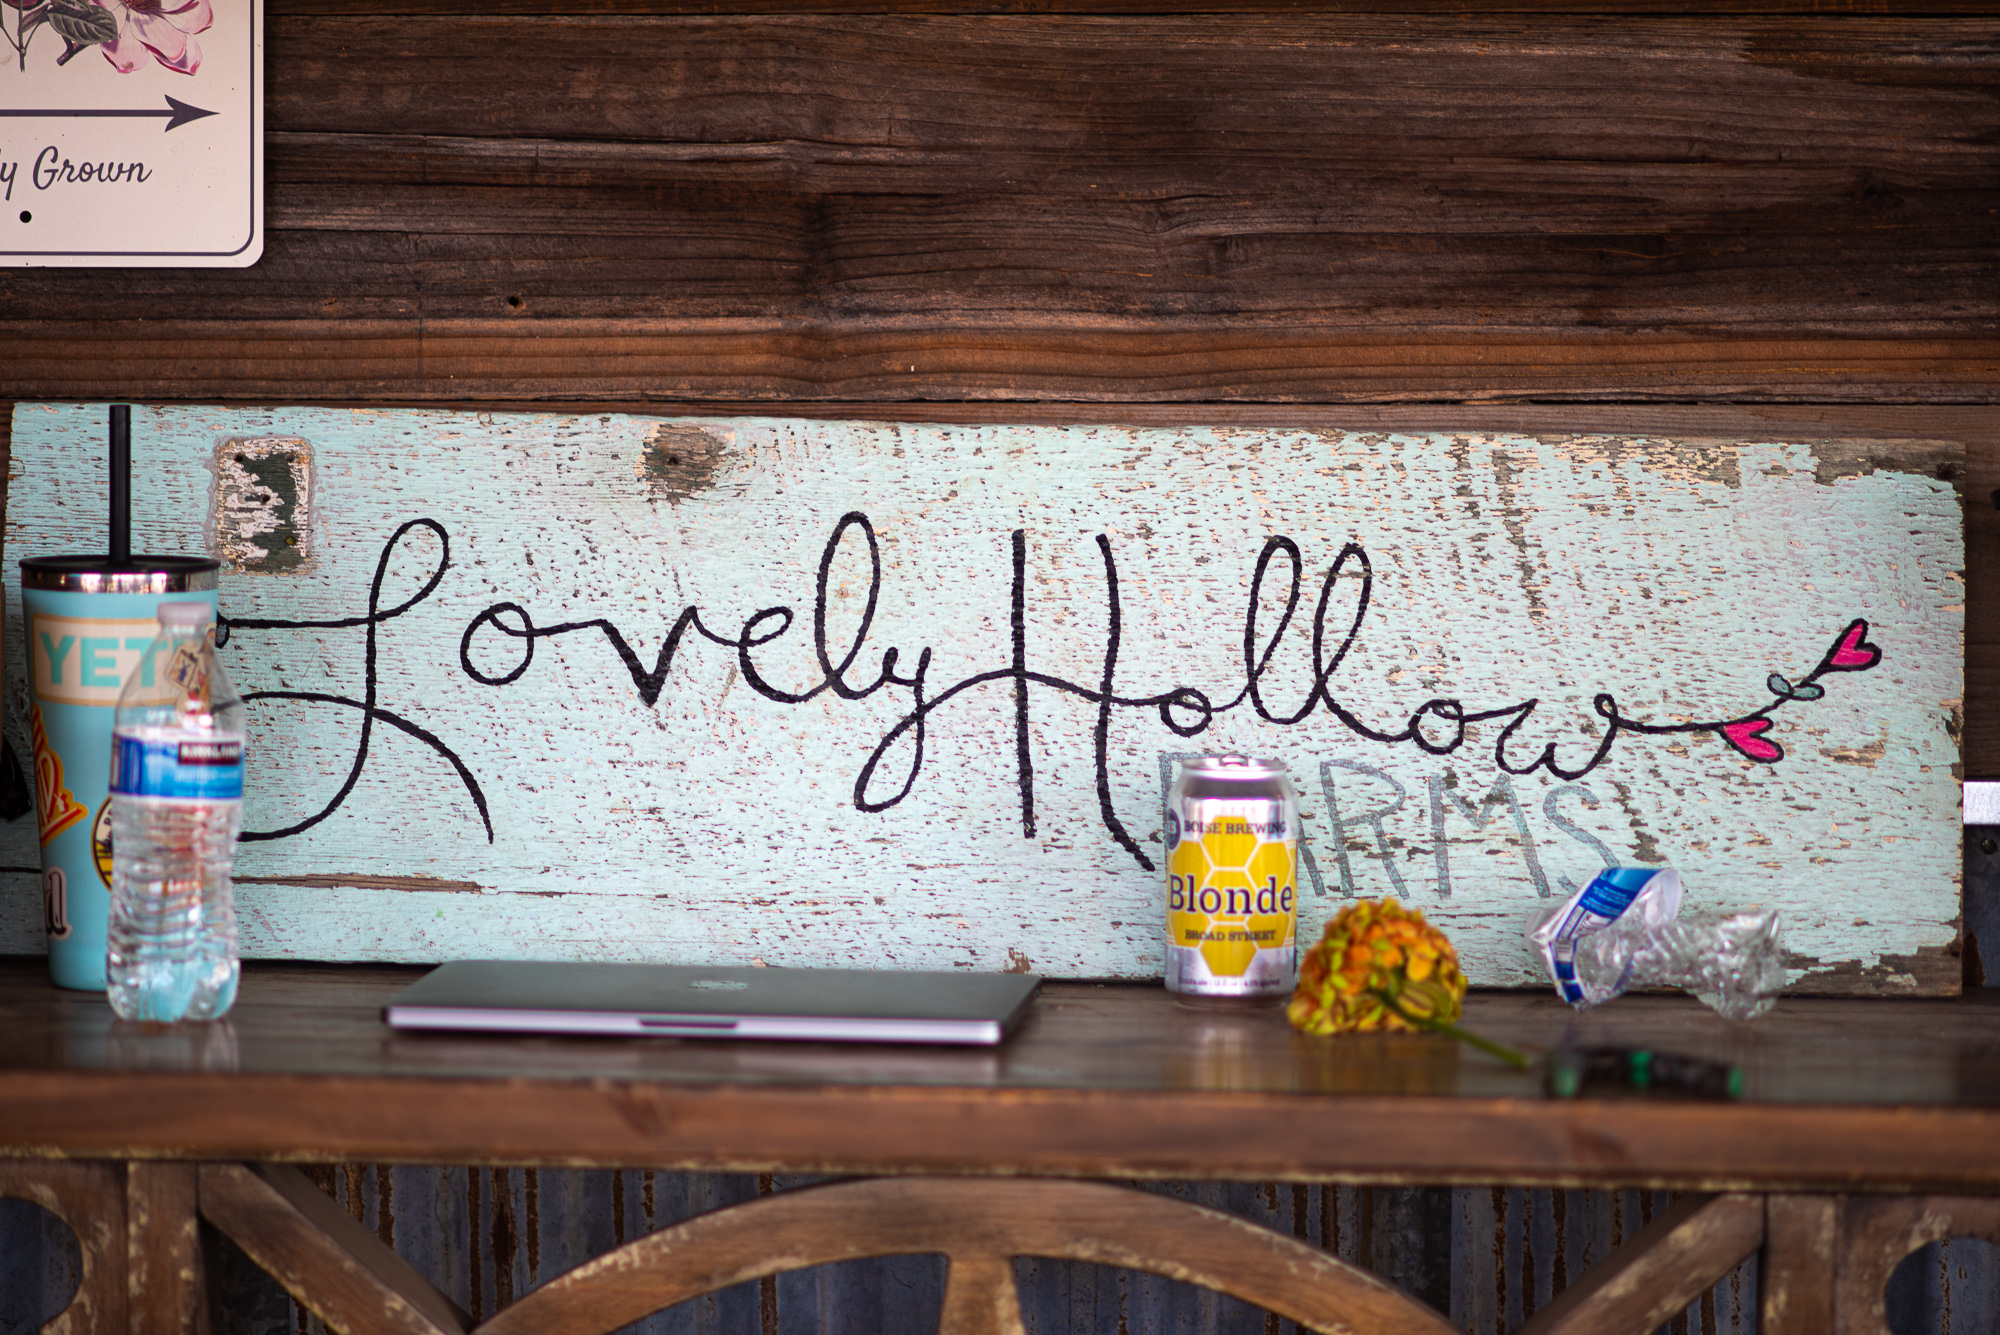 y Grown
Lovely Hollow
FARMS
YETI
KIRKLAND
BOISE BREWING
Blonde
BROAD STREET